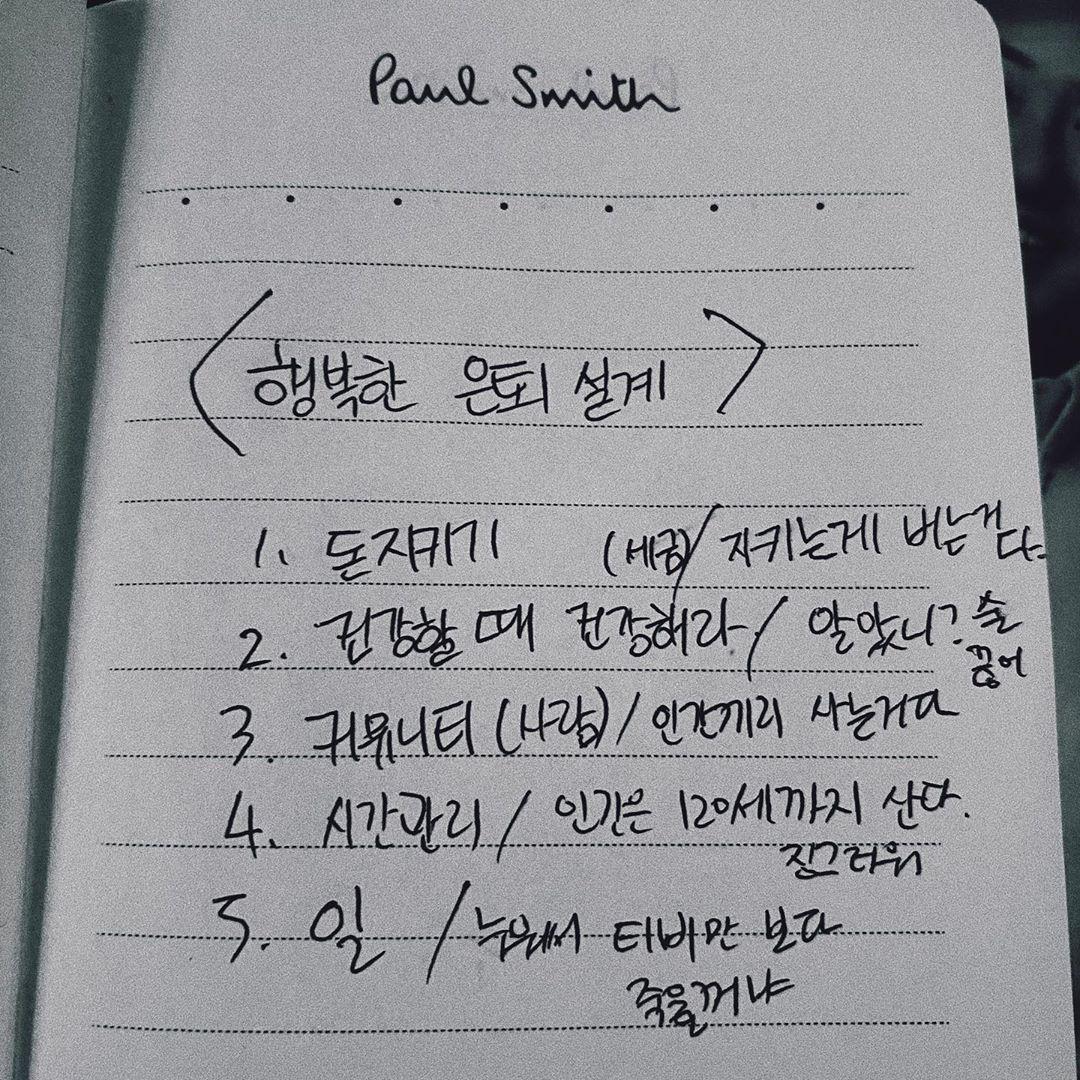 Paul Smith
<행복한 은퇴 설계>
1. 돈지키기 (세금)/ 지키는게 버는거다.
2. 건강할 때 건강해라 / 알았니? 술 끊어
3. 커뮤니티 (사람) / 인간끼리 사는거다
4. 시간관리 / 인간은 120세까지 산다.
징그러워
5. 일 / 누워서 티비만 보다
죽을꺼냐